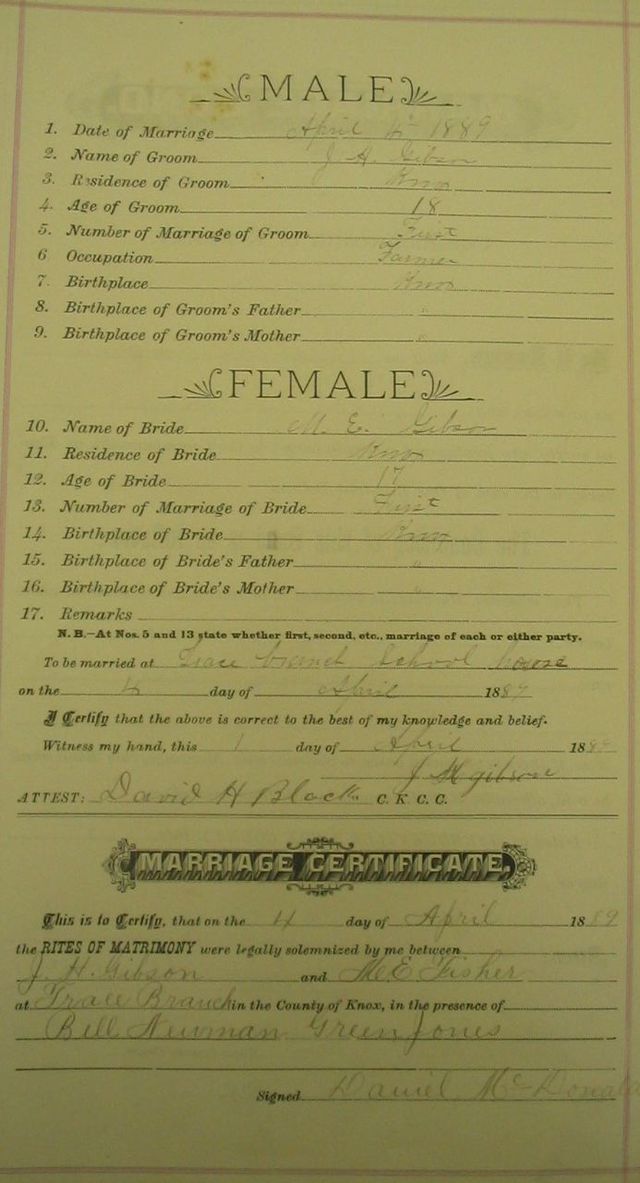 MALE
1. Date of Marriage April 4th 1889
2. Name of Groom J. H. Gibson
3. Residence of Groom Knox
4. Age of Groom 18
5. Number of Marriage of Groom First
6 Occupation Farmer
7. Birthplace Knox
8. Birthplace of Groom's Father "
9. Birthplace of Groom's Mother "
FEMALE
10. Name of Bride M. E. Gibson
11. Residence of Bride Knox
12. Age of Bride 17
13. Number of Marriage of Bride First
14. Birthplace of Bride Knox
15. Birthplace of Bride's Father "
16. Birthplace of Bride's Mother "
17. Remarks
N. B.—At Nos. 5 and 13 state whether first, second, etc., marriage of each or either party.
To be married at Trace branch School house
on the 4 day of April 1889
I Certify that the above is correct to the best of my knowledge and belief.
Witness my hand, this 1 day of April 1889
J H gibson
ATTEST: David H Black C. K. C. C.
MARRIAGE CERTIFICATE.
This is to Certify, that on the 4 day of April 1889
the RITES OF MATRIMONY were legally solemnized by me between
J. H. Gibson and M E Fisher
at Trace Branch in the County of Knox, in the presence of
Bill Newman Green Jones
Signed Daniel McDonald